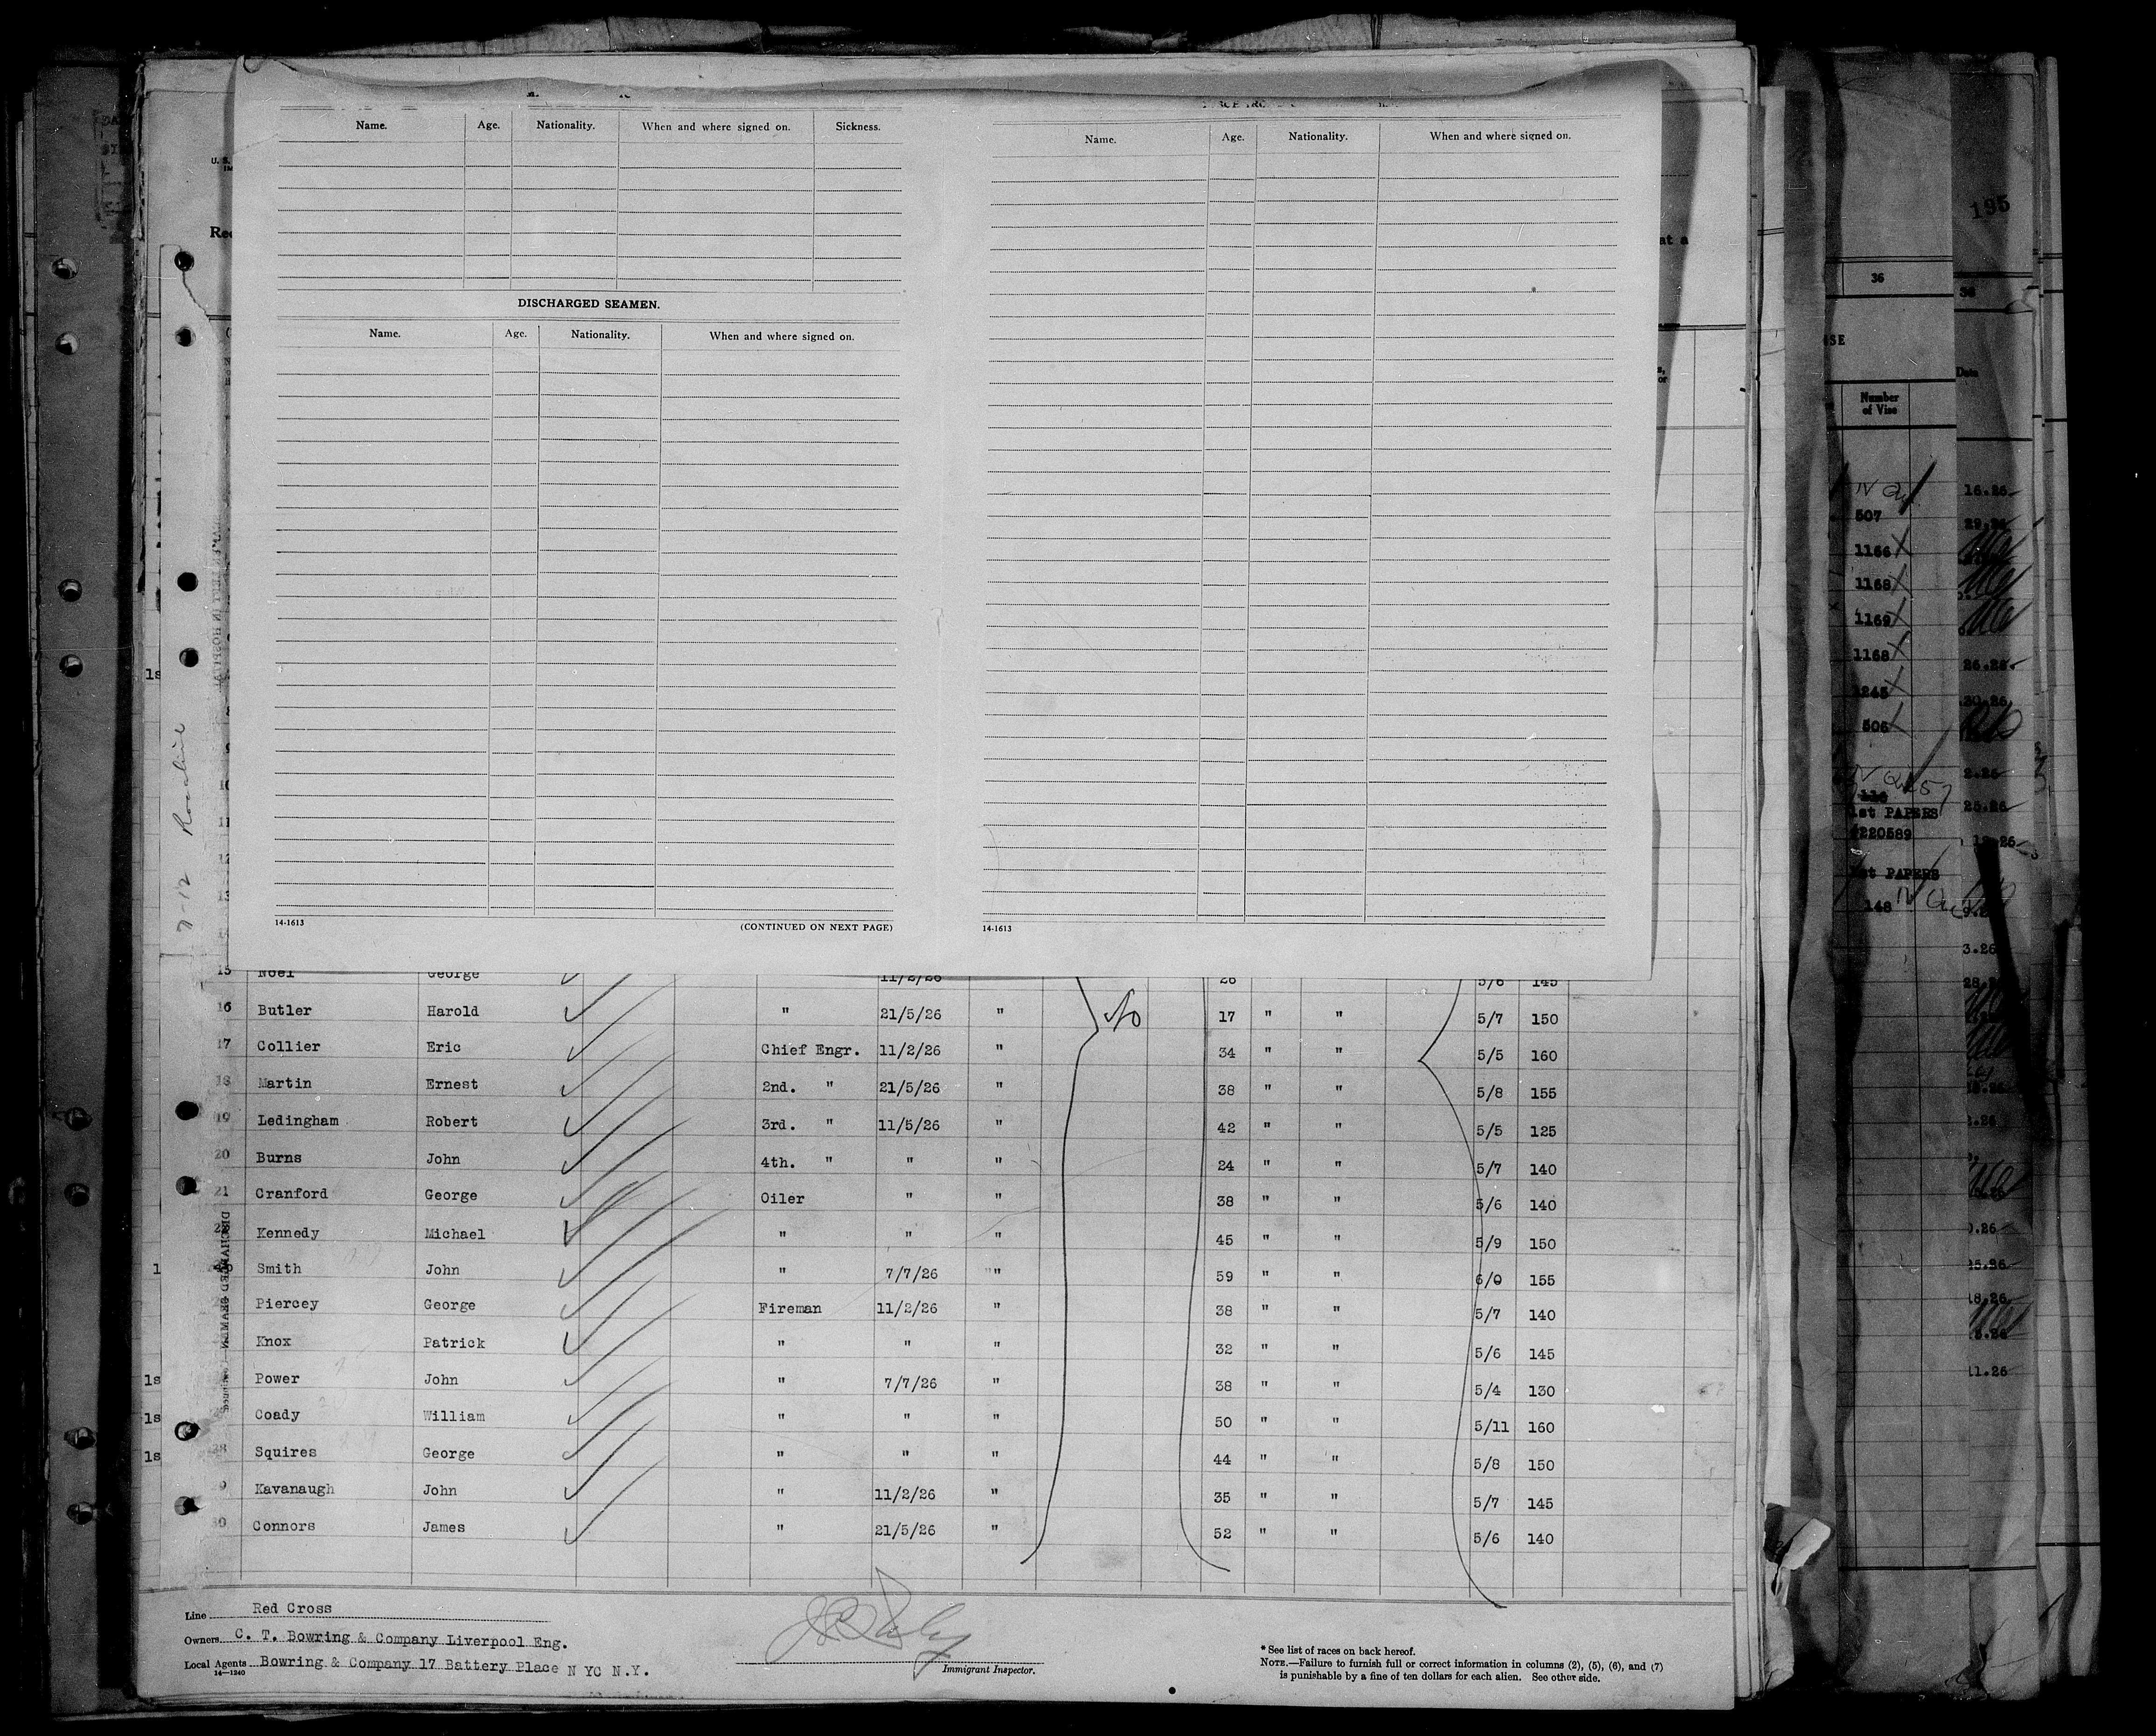 Name. Age. Nationality. When and where signed on. Sickness.
DISCHARGED SEAMEN.
Name. Age. Nationality. When and where signed on.
14-1613 (CONTINUED ON NEXT PAGE)
Name. Age. Nationality. When and where signed on.
14-1613
15 Noel George 11/2/26 26 5/6 145
16 Butler Harold " 21/5/26 " No 17 " " 5/7 150
17 Collier Eric Chief Engr. 11/2/26 " 34 " " 5/5 160
18 Martin Ernest 2nd. " 21/5/26 " 38 " " 5/8 155
19 Ledingham Robert 3rd. " 11/5/26 " 42 " " 5/5 125
20 Burns John 4th. " " " 24 " " 5/7 140
21 Cranford George Oiler " " 38 " " 5/6 140
Kennedy Michael " " " 45 " " 5/9 150
1 Smith John " 7/7/26 " 59 " " 6/0 155
Piercey George Fireman 11/2/26 " 38 " " 5/7 140
Knox Patrick " " " 32 " " 5/6 145
1s Power John " 7/7/26 " 38 " " 5/4 130
1s Coady William " " " 50 " " 5/11 160
1s 28 Squires George " " " 44 " " 5/8 150
9 Kavanaugh John " 11/2/26 " 35 " " 5/7 145
30 Connors James " 21/5/26 " 52 " " 5/6 140
Line Red Cross
Owners C. T. Bowring & Company Liverpool Eng.
Local Agents Bowring & Company 17 Battery Place N YC N.Y.
14-1240
Immigrant Inspector.
* See list of races on back hereof.
NOTE.—Failure to furnish full or correct information in columns (2), (5), (6), and (7)
is punishable by a fine of ten dollars for each alien. See other side.
7-12 Rosalind
DISCHARGED SEAMEN
at a
195
36
36
Date
Number
of Vise
507
1166
1168
1169
1168
1245
506
1st PAPERS
220589
1st PAPERS
148
16.26
29.26
26.26
30.26
2.26
25.26
3.26
11.26